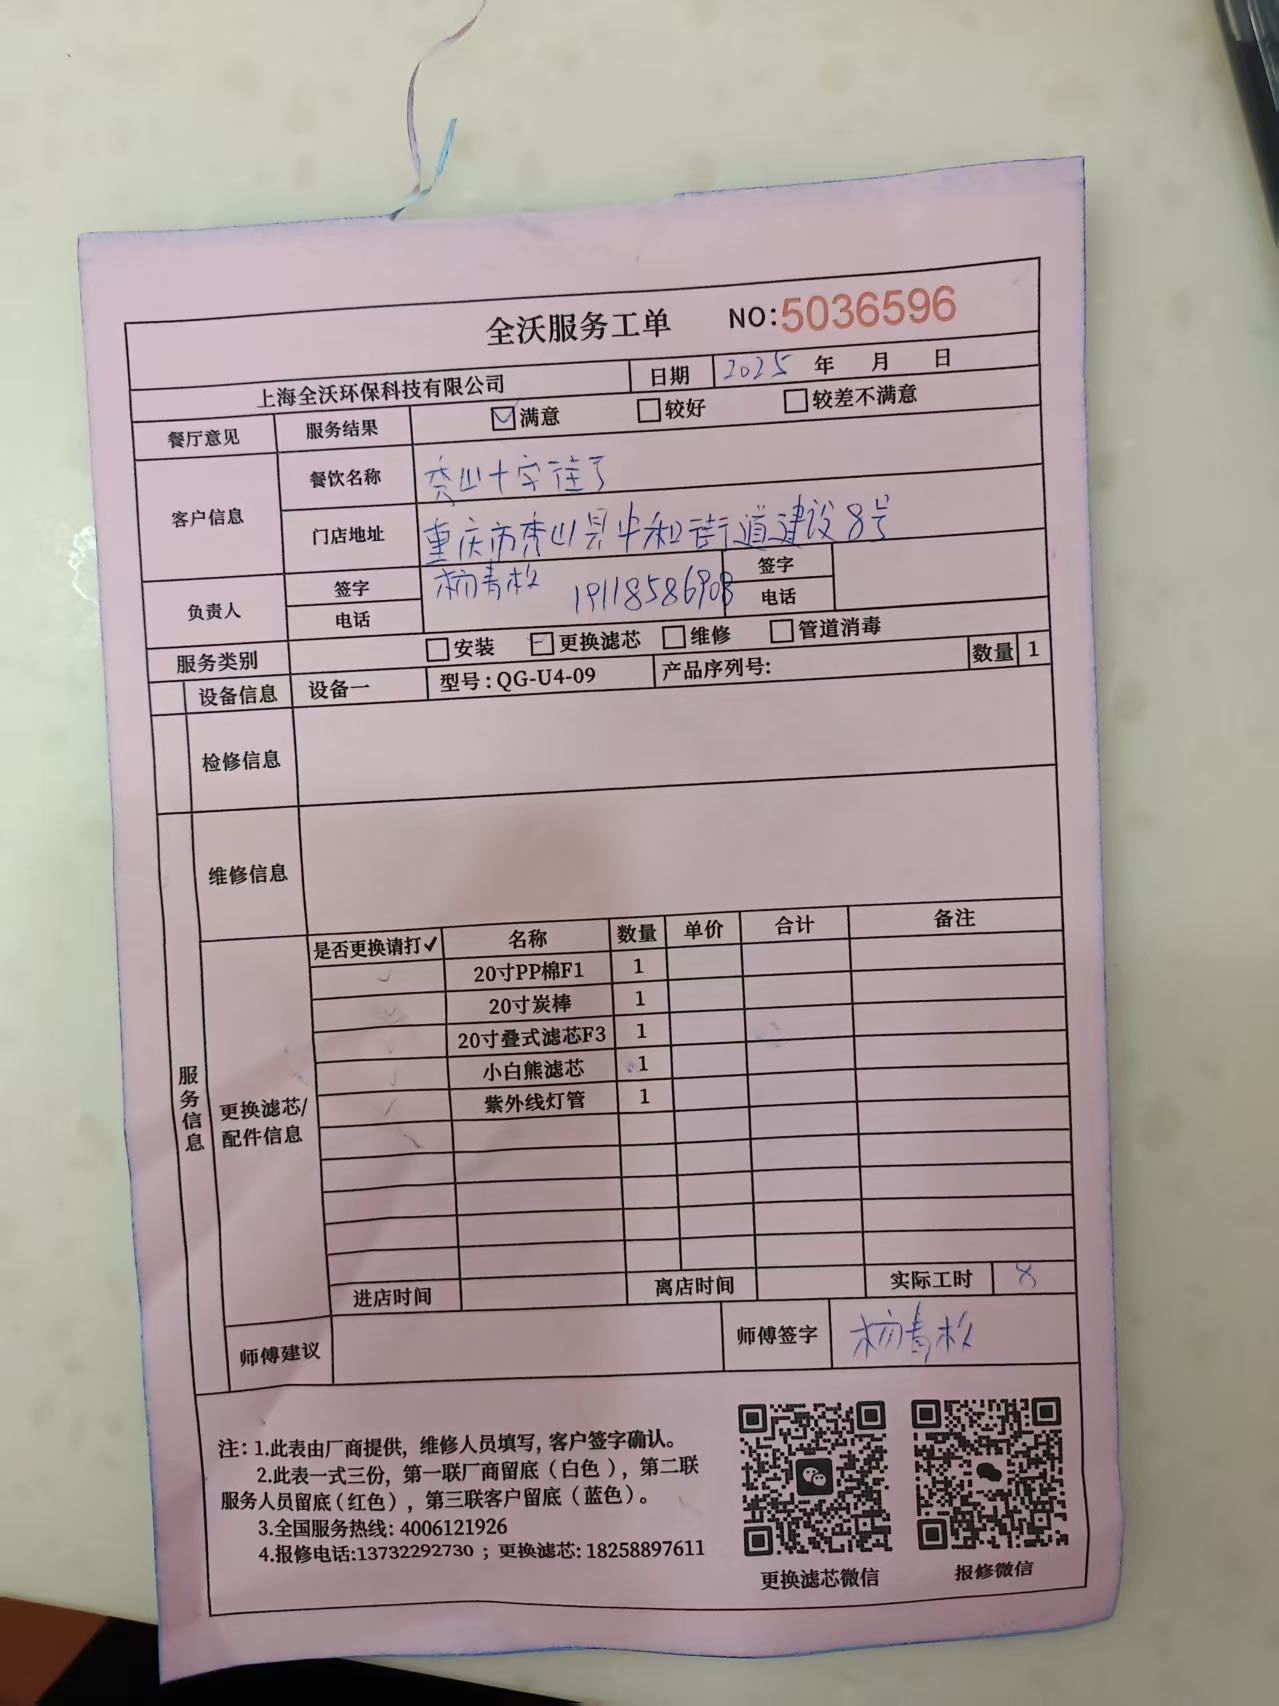 全沃服务工单 NO:5036596
上海全沃环保科技有限公司 日期 2025 年 月 日
餐厅意见 服务结果 满意 较好 较差不满意
客户信息 餐饮名称 秀山十字
门店地址 重庆市秀山县中和街道建设8号
负责人 签字 杨青松 签字
电话 19118586908 电话
服务类别 安装 更换滤芯 维修 管道消毒
设备信息 设备一 型号:QG-U4-09 产品序列号: 数量 1
检修信息
维修信息
服务信息
更换滤芯/
配件信息
是否更换请打✓ 名称 数量 单价 合计 备注
✓ 20寸PP棉F1 1
✓ 20寸炭棒 1
✓ 20寸叠式滤芯F3 1
✓ 小白熊滤芯 1
✓ 紫外线灯管 1
进店时间 离店时间 实际工时 8
师傅建议 师傅签字 杨青松
注: 1.此表由厂商提供, 维修人员填写, 客户签字确认。
2.此表一式三份, 第一联厂商留底(白色), 第二联
服务人员留底(红色), 第三联客户留底(蓝色)。
3.全国服务热线: 4006121926
4.报修电话:13732292730 ; 更换滤芯: 18258897611
更换滤芯微信 报修微信